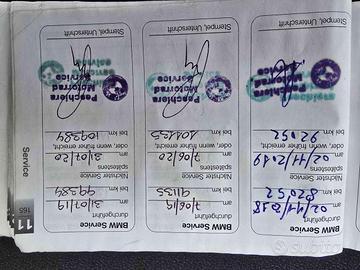 BMW Service
durchgeführt
am 02/11/2018
bei km 82052
Nächster Service
spätestens
am 02/11/2019
oder, wenn früher erreicht,
bei km 92052
Paschiera
Motorrad
Service
Stempel, Unterschrift
BMW Service
durchgeführt
am 7/06/19
bei km
Nächster Service
spätestens
am 7/06/20
oder, wenn früher erreicht,
bei km
Paschiera
Motorrad
Service
Stempel, Unterschrift
BMW Service
durchgeführt
am 31/07/19
bei km 99384
Nächster Service
spätestens
am 31/07/20
oder, wenn früher erreicht,
bei km 109384
Paschiera
Motorrad
Service
Stempel, Unterschrift
11
165
Service
subito